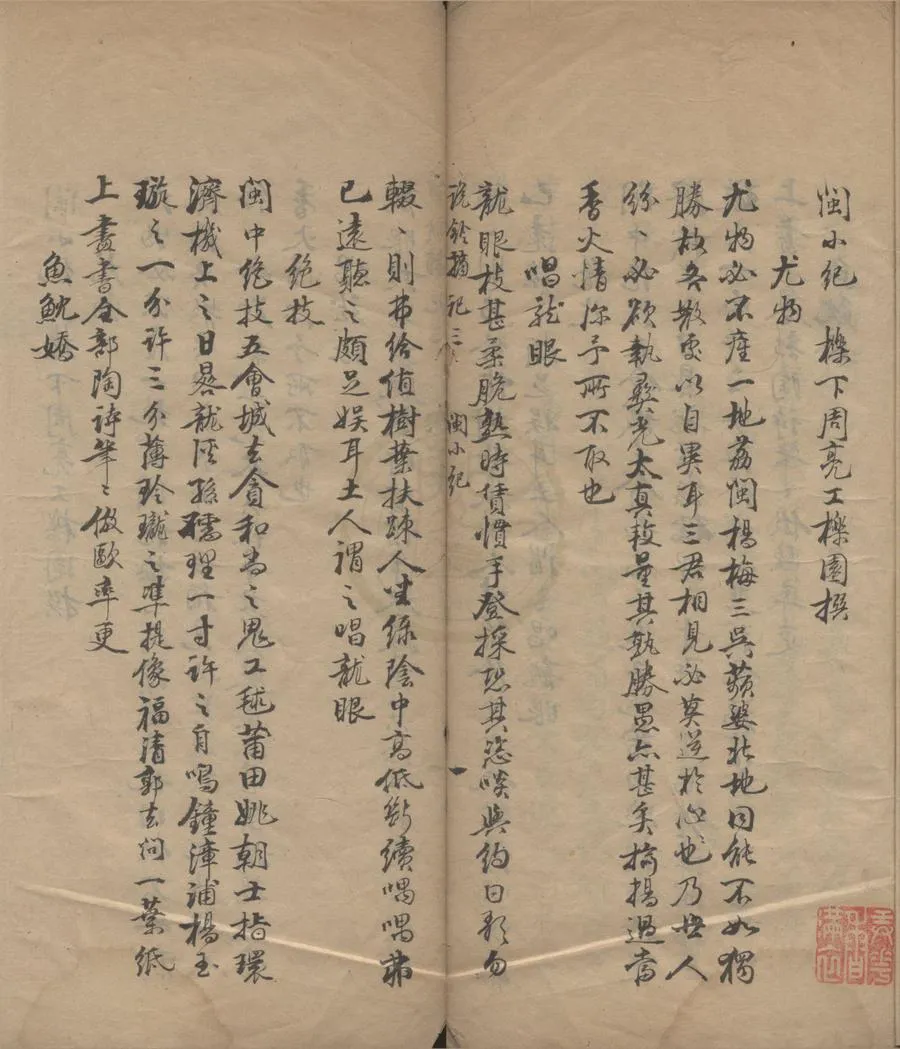 閩小紀 櫟下周亮工櫟園撰
尤物
尤物必不產一地荔閩楊梅三吳蘋婆北地同能不如獨
勝故各散處以自異耳三君相見必莫逆於心也乃世人
紛、必欲執彝光太真較量其孰勝愚亦甚矣揄揚過當
香火情深予所不取也
唱龍眼
龍眼枝甚柔脆熟時賃慣手登採恐其恣啖與約曰歌勿
說鈴摘記三 閩小紀 一
輟、則弗給值樹葉扶疎人坐綠陰中高低斷續喁喁弗
已遠聽之頗足娛耳土人謂之唱龍眼
絕技
閩中絕技五會城去貪和尚之鬼工毬莆田姚朝士指環
濟機上之日晷龍溪孫孺理一寸許之自鳴鐘漳浦楊玉
璇之一分許三分薄玲瓏之準提像福清郭去問一葉紙
上盡書全部陶詩筆、倣歐率更
魚魫嬌